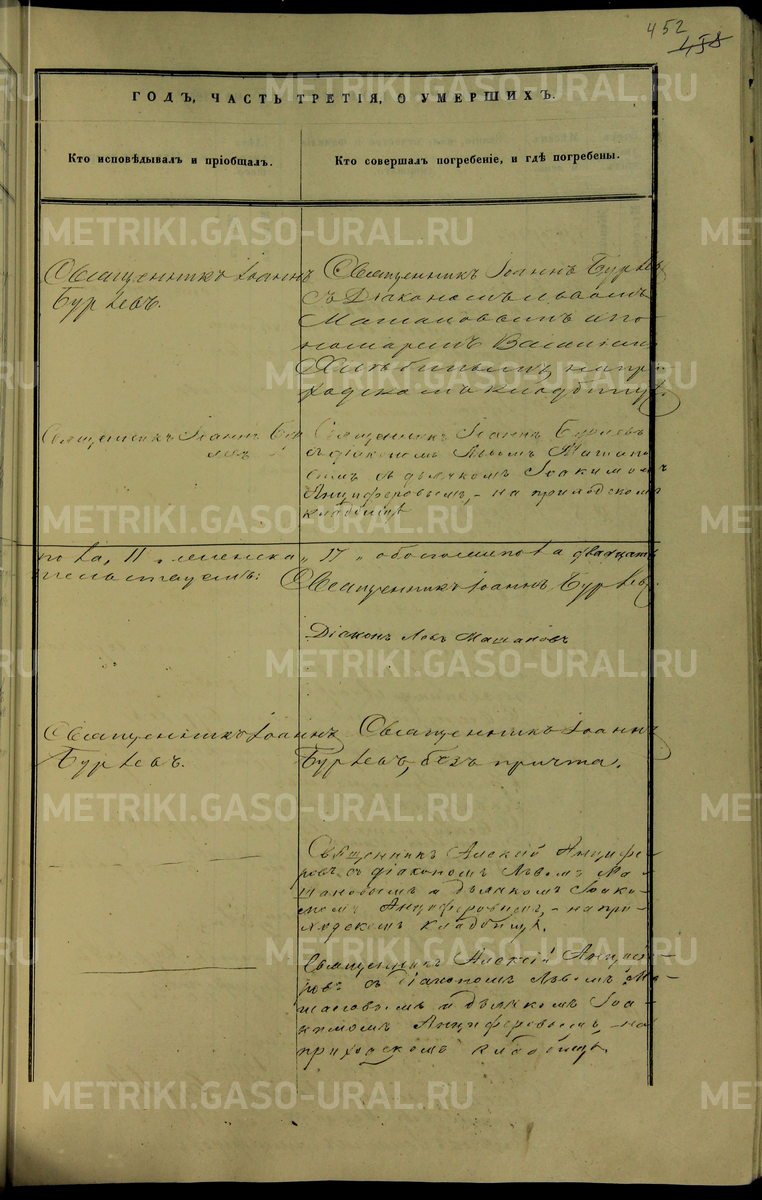 452
458
ГОДЪ, ЧАСТЬ ТРЕТІЯ, О УМЕРШИХЪ.
Кто исповѣдывалъ и пріобщалъ.
Кто совершалъ погребеніе, и гдѣ погребены.
Священникъ Іоаннъ
Бурлевъ.
Священникъ Іоаннъ Бурлевъ
съ Діакономъ Львомъ
Машановымъ и по
номаремъ Василіемъ
на при
ходскомъ кладбищѣ.
Священникъ Іоаннъ Бур
левъ
Священникъ Іоаннъ Бурлевъ
съ діакономъ Львомъ Машано
вымъ съ дьячкомъ Іоакимомъ
Анциферовымъ, - на приходскомъ
кладбищѣ
11 женска „ 17 „ обоего пола двадцать
Священникъ Іоаннъ Бурлевъ.
Діаконъ Левъ Машановъ
Священникъ Іоаннъ
Бурлевъ.
Священникъ Іоаннъ
Бурлевъ, безъ причта.
Священникъ Алексій Анцифе-
ровъ съ діакономъ Львомъ Ма-
шановымъ и дьячкомъ Іоаки-
момъ Анциферовымъ, - на при-
ходскомъ кладбищѣ.
Священникъ Алексій Анцифе-
ровъ съ діакономъ Львомъ Ма-
шановымъ и дьячкомъ Іоа-
кимомъ Анциферовымъ на
приходскомъ кладбищѣ.
METRIKI.GASO-URAL.RU